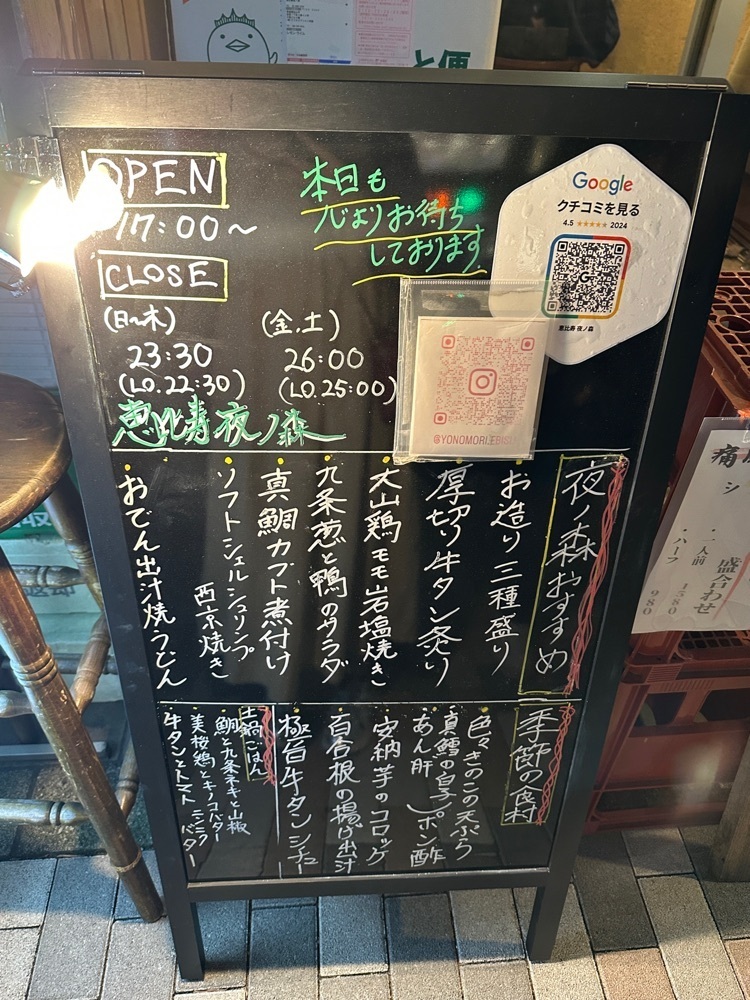 と便
OPEN
17:00～
CLOSE
(日～木)
23:30
(LO.22:30)
(金.土)
26:00
(LO.25:00)
本日も
心よりお待ち
しております
恵比寿 夜ノ森
Google
クチコミを見る
4.5 ★★★★★ 2024
恵比寿 夜ノ森
@YONOMORI.EBISU
夜ノ森おすすめ
・お造り三種盛り
・厚切り牛タン炙り
・大山鶏モモ岩塩焼き
・九条葱と鴨のサラダ
・真鯛カブト煮付け
・ソフトシェルシュリンプ
西京焼き
・おでん出汁焼うどん
季節の食材
・色々きのこの天ぷら
・真鱈の白子
・あん肝
ポン酢
・安納芋のコロッケ
・百合根の揚げ出汁
・極旨牛タンシチュー
土鍋ごはん
・鯛と九条ネギと山椒
・美桜鶏とキノコバター
・牛タンとトマト ニンニク
バター
シ
盛合わせ
・一人前 1580
・ハーフ 980